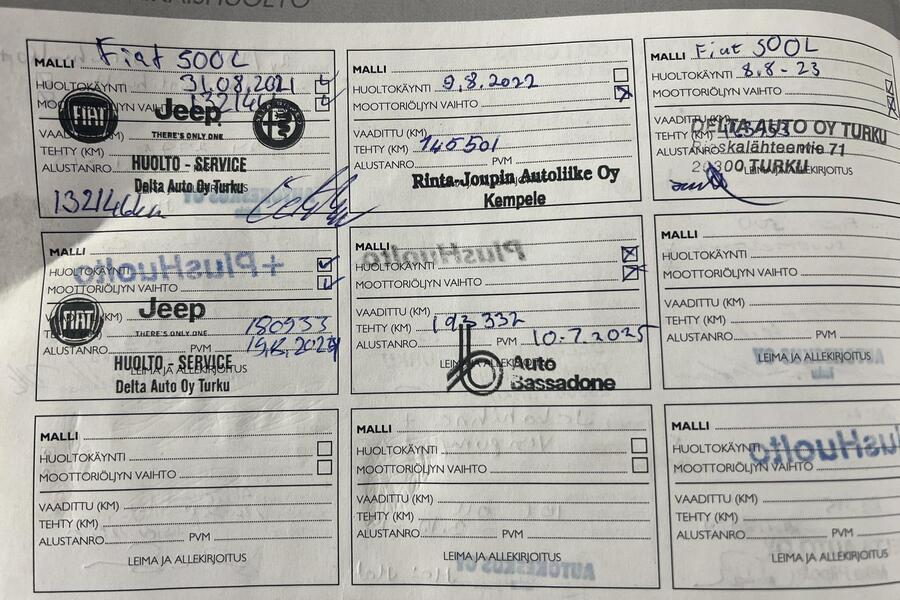 MALLI Fiat 500L
HUOLTOKÄYNTI 31.08.2021
MOOTTORIÖLJYN VAIHTO 132144
FIAT Jeep
THERE'S ONLY ONE
VAADITTU (KM)
TEHTY (KM)
ALUSTANRO
HUOLTO - SERVICE
Delta Auto Oy Turku
132144km
MALLI
HUOLTOKÄYNTI 9.8.2022
MOOTTORIÖLJYN VAIHTO
VAADITTU (KM)
TEHTY (KM) 145501
ALUSTANRO PVM
Rinta-Joupin Autoliike Oy
Kempele
MALLI Fiat 500L
HUOLTOKÄYNTI 8.8-23
MOOTTORIÖLJYN VAIHTO
VAADITTU (KM)
DELTA AUTO OY TURKU
TEHTY (KM)
ALUSTANRO
TURKU
LEIMA JA ALLEKIRJOITUS
MALLI
HUOLTOKÄYNTI
MOOTTORIÖLJYN VAIHTO
VAADITTU (KM)
FIAT Jeep
THERE'S ONLY ONE
TEHTY (KM) 180933
ALUSTANRO PVM
HUOLTO - SERVICE
LEIMA JA ALLEKIRJOITUS
Delta Auto Oy Turku
MALLI
HUOLTOKÄYNTI
MOOTTORIÖLJYN VAIHTO
VAADITTU (KM)
TEHTY (KM) 193332
ALUSTANRO PVM 10.7.2025
Auto
Bassadone
MALLI
HUOLTOKÄYNTI
MOOTTORIÖLJYN VAIHTO
VAADITTU (KM)
TEHTY (KM)
ALUSTANRO PVM
LEIMA JA ALLEKIRJOITUS
MALLI
HUOLTOKÄYNTI
MOOTTORIÖLJYN VAIHTO
VAADITTU (KM)
TEHTY (KM)
ALUSTANRO PVM
LEIMA JA ALLEKIRJOITUS
MALLI
HUOLTOKÄYNTI
MOOTTORIÖLJYN VAIHTO
VAADITTU (KM)
TEHTY (KM)
ALUSTANRO PVM
LEIMA JA ALLEKIRJOITUS
MALLI
HUOLTOKÄYNTI
MOOTTORIÖLJYN VAIHTO
VAADITTU (KM)
TEHTY (KM)
ALUSTANRO PVM
LEIMA JA ALLEKIRJOITUS